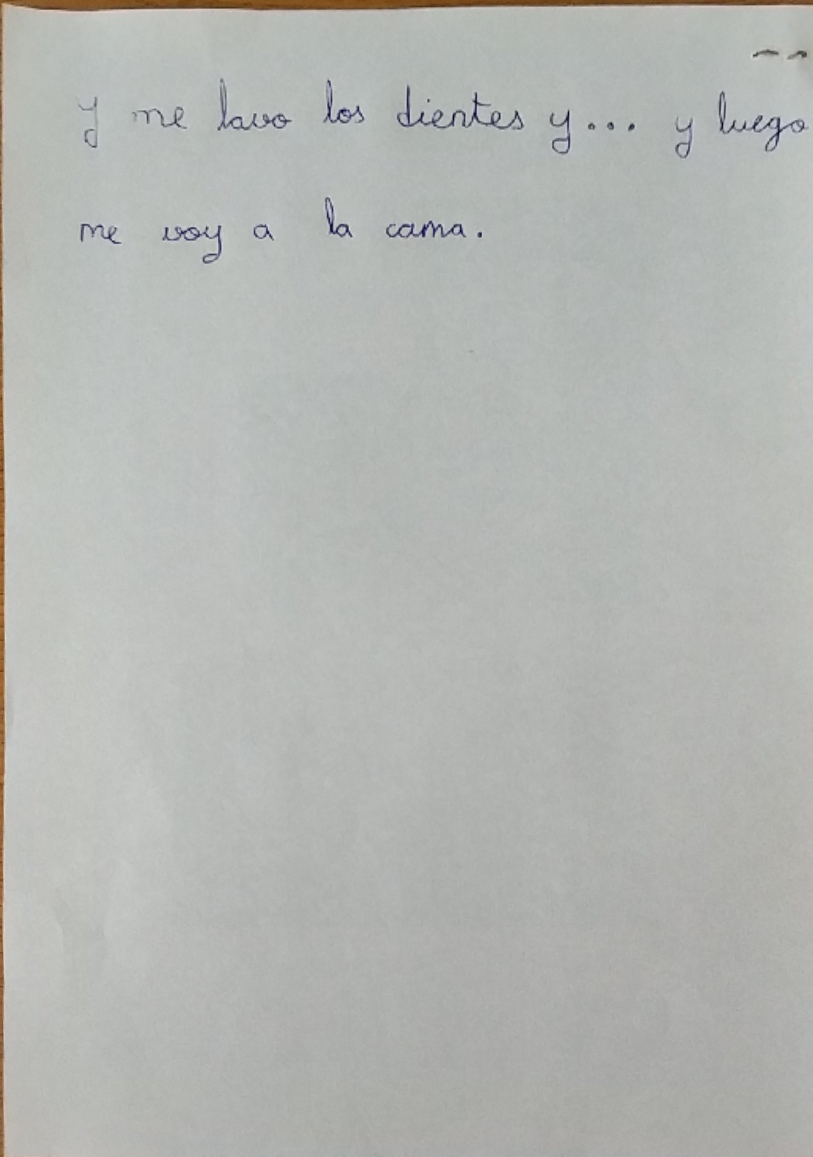 y me lavo los dientes y... y luego
me voy a la cama.